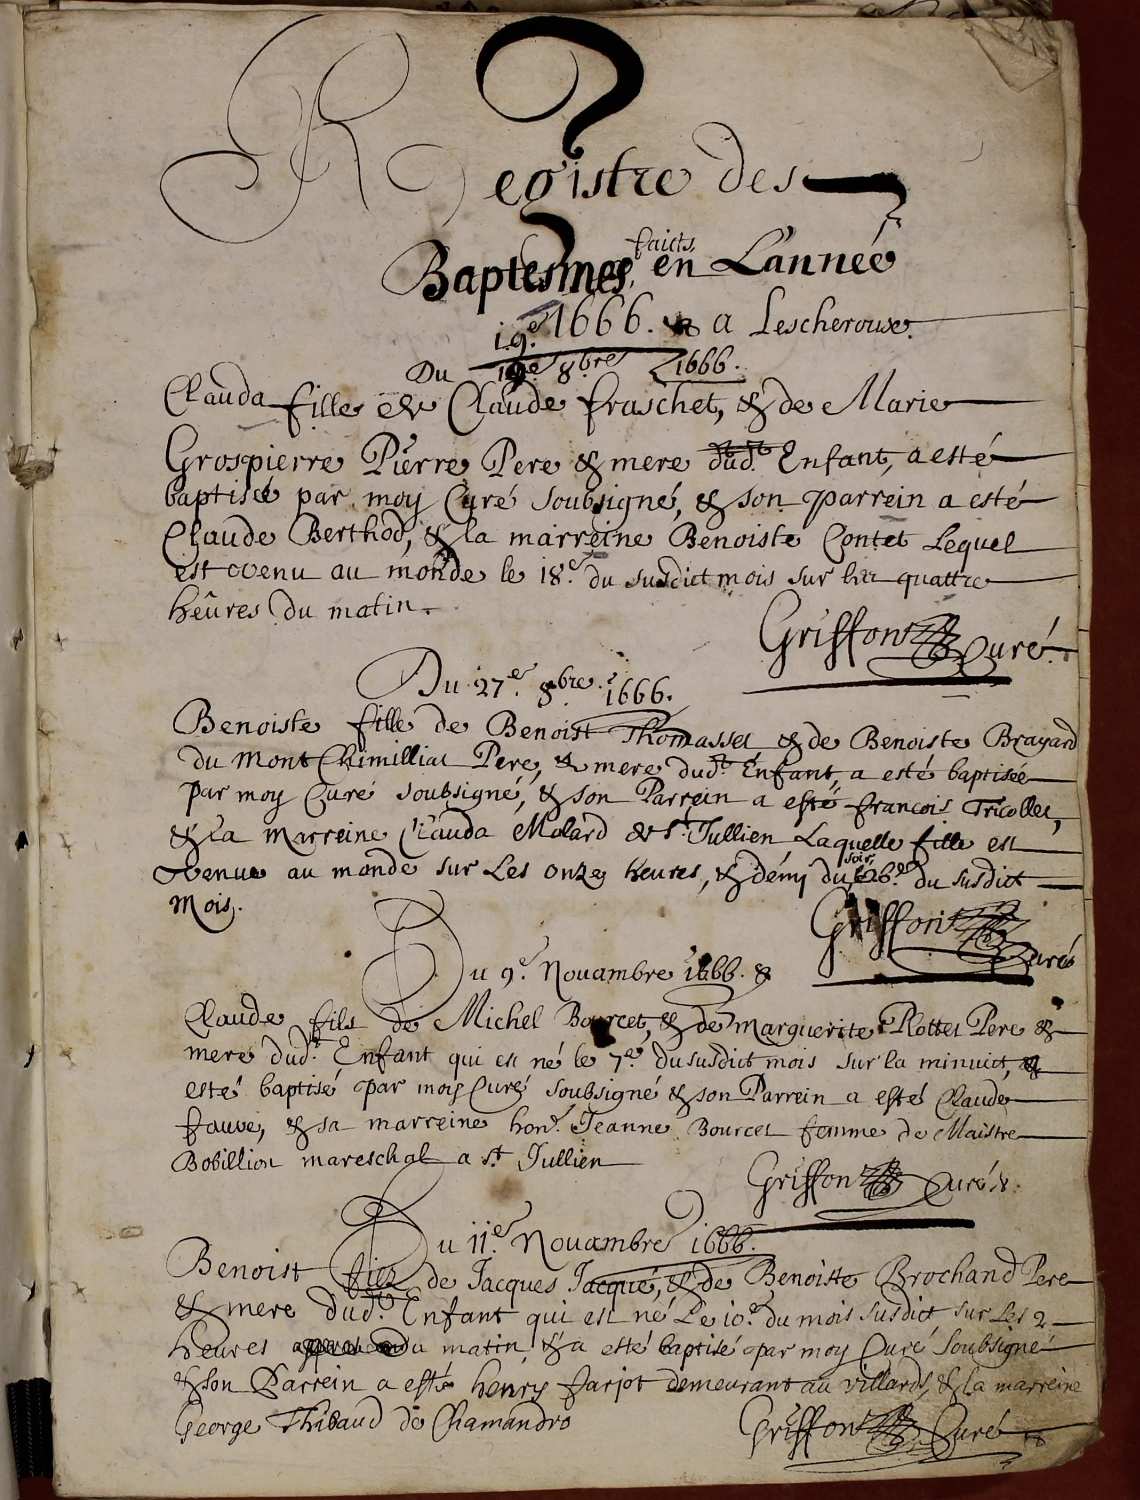 Registre des
faicts
Baptesmes, en L'année
1666. a Lescheroux.
Du 19e 8bre 1666.
Clauda fille de Claude fraschet, & de Marie
Grospierre Pierre Pere & mere dud.t Enfant, a esté
baptiséé par moy Curé soubsigné, & son parrein a esté
Claude Berthod, & la marreine Benoiste Contet Lequel
est venu au monde le 18.e du susdict mois sur les quattre
heûres du matin.
Griffon Curé.
Du 27e. 8bre. 1666.
Benoiste fille de Benoist Thomasset, & de Benoiste Brayard
du Mont Chimilliat Pere, & mere dud.t Enfant, a esté baptisée
par moy Curé soubsigné, & son Parrein a esté francois Tricollet,
& La Marreine Clauda Molard de St Jullien Laquelle fille est
soir,
Venue au monde sur Les onze heures, & démy du 26.e du susdict
Mois.
Griffon Curé
Du 9e. Novambre 1666. &
Claude fils de Michel Bourcet, & de Marguerite Rottet Pere &
mere dud.t Enfant qui est né le 7.e du susdict mois sur la minuict, &
esté baptisé par moy Curé soubsigné & son Parrein a esté Claude
fauve, & sa marreine hon.e Jeanne Bourcet femme de Maistre
Bobillion mareschal a st Jullien
Griffon Curé.
Du 11e. Novambre 1666.
Benoist filz de Jacques Jacque, & de Benoiste Brochand Pere
& mere dud.t Enfant qui est né Le 10.e du mois susdict sur Les 2
heures du matin & a esté baptisé par moy Curé soubsigné
& son Parrein a esté henry farjot demeurant au villard, & la marreine
George Thibaud de Chamandro
Griffon Curé